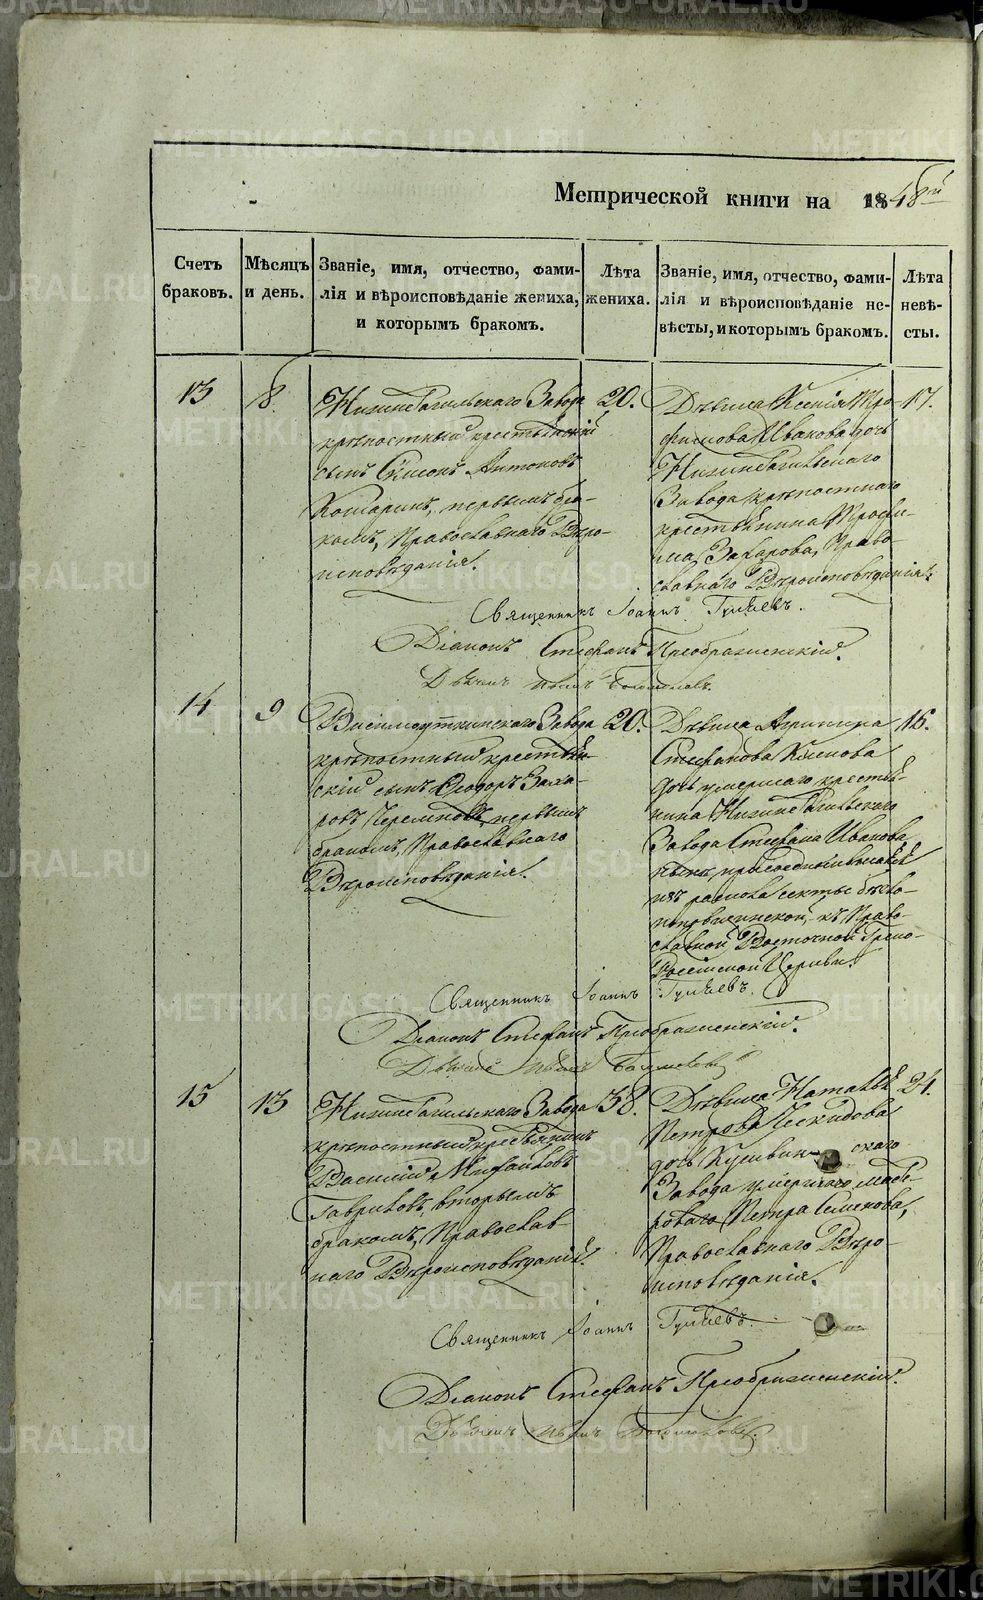 METRIKI.GASO-URAL.RU
Метрической книги на 1848й
Счетъ браковъ.
Мѣсяцъ и день.
Званіе, имя, отчество, фами-
лія и вѣроисповѣданіе жениха,
и которымъ бракомъ.
Лѣта
жениха.
Званіе, имя, отчество, фами-
лія и вѣроисповѣданіе не-
вѣсты, и которымъ бракомъ.
Лѣта
невѣ-
сты.
13
8
Нижнетагильскаго Завода
крѣпостный крестьянскій
сынъ Симонъ Антоновъ
первымъ бра-
комъ, Православнаго Вѣро-
исповѣданія.
20.
Дѣвица Ксенія Тро-
фимова Иванова дочь
Нижнетагильскаго
Завода крѣпостнаго
крестьянина Трофи-
ма Захарова, Право-
славнаго Вѣроисповѣданія.
17.
Священникъ Іоаннъ
Діаконъ Стефанъ Преображенскій.
14
9
Висимоуткинскаго Завода
крѣпостный крестьян-
скій сынъ Ѳеодоръ Заха-
ровъ первымъ
бракомъ, Православнаго
Вѣроисповѣданія.
20.
Дѣвица Агрипина
Стефанова
дочь умершаго крестья-
нина Нижнетагильскаго
Завода Стефана Иванова,
нынѣ присоединившаяся
изъ раскола секты безпо-
къ Право-
славной Восточной Греко-
Россійской Церкви.
16.
Священникъ Іоаннъ
Діаконъ Стефанъ Преображенскій.
15
13
Нижнетагильскаго Завода
крѣпостный крестьянинъ
Василій Михайловъ
Гавриловъ, вторымъ
бракомъ, Православ-
наго Вѣроисповѣданія.
38.
Дѣвица Наталья
Петрова
дочь Кушвинскаго
Завода умершаго масте-
роваго Петра Семенова,
Православнаго Вѣро-
исповѣданія.
24.
Священникъ Іоаннъ
Діаконъ Стефанъ Преображенскій.